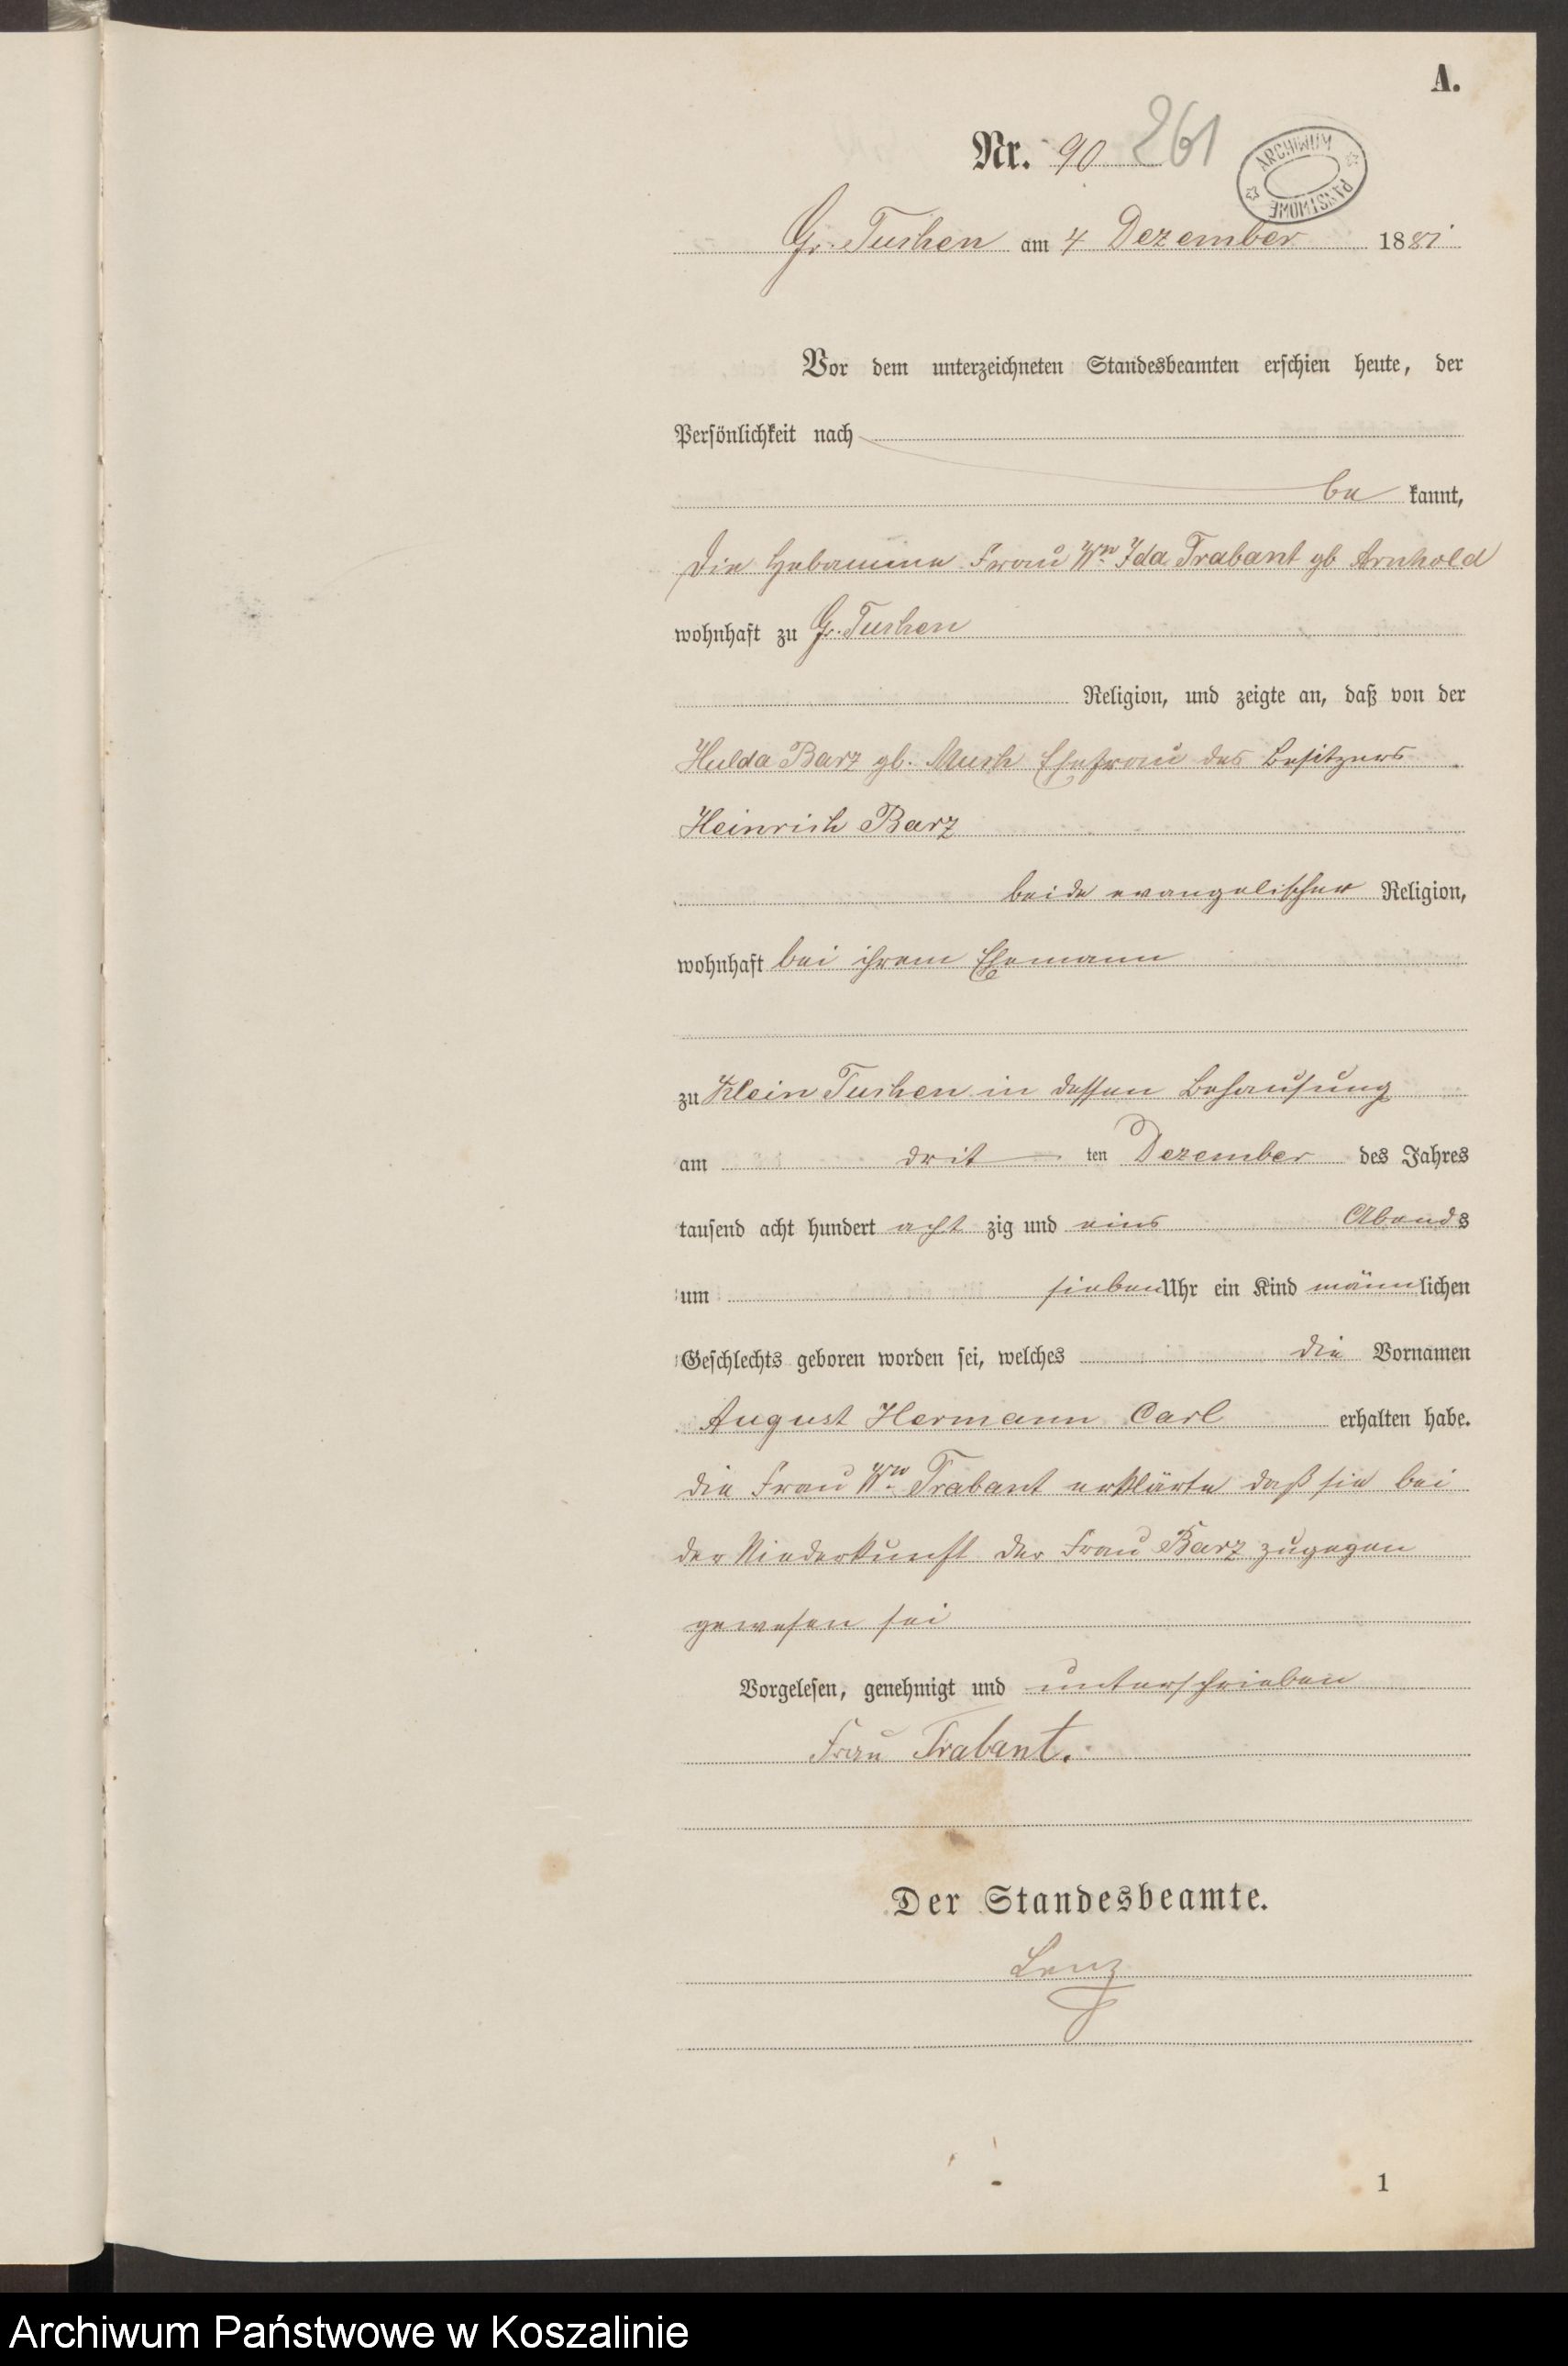 A.
Nr. 90 261
ARCHIWUM PAŃSTWOWE
Gr. Tuchen am 4 Dezember 1881
Vor dem unterzeichneten Standesbeamten erschien heute, der
Persönlichkeit nach
be kannt,
die Hebamme Frau Ww Ida Trabant gb Arnhold
wohnhaft zu Gr. Tuchen
Religion, und zeigte an, daß von der
Hulda Barz gb. Much Ehefrau des Besitzers
Heinrich Barz
beide evangelischer Religion,
wohnhaft bei ihrem Ehemann
zu Klein Tuchen in dessen Behausung
am drit ten Dezember des Jahres
tausend acht hundert acht zig und eins Abends
um sieben Uhr ein Kind männlichen
Geschlechts geboren worden sei, welches die Vornamen
August Hermann Carl erhalten habe.
die Frau Ww Trabant erklärte daß sie bei
der Niederkunft der Frau Barz zugegen
gewesen sei
Vorgelesen, genehmigt und unterschrieben
Frau Trabant.
Der Standesbeamte.
Lenz
1
Archiwum Państwowe w Koszalinie